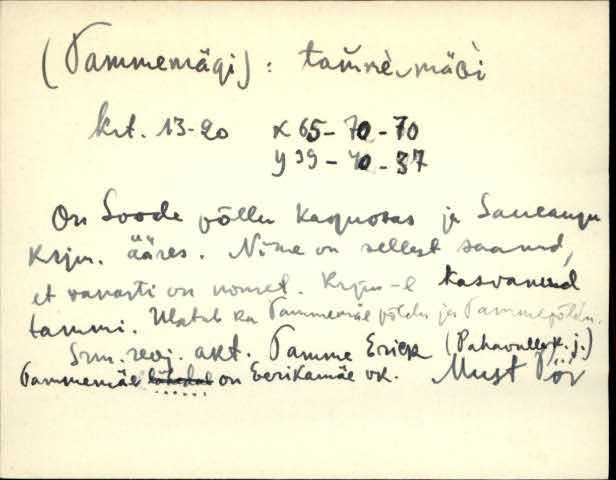 (Tammemägi): tam̆mè͜mäɢ̀i
krt. 13-20 x 65-70-70
y 39-40-37
On Soode põllu kagnosas ja
krju. ääres. Nime on sellest saanud,
et vanasti on Krju-l kasvanud
tammi. Ulatub ka Tammemäe põldu ja Tammepõldu.
Srm. revj. akt. Tamme Erick (Pahavalla k. j.)
Tammemäe lähedal on Eerikamäe vk. Must Pör